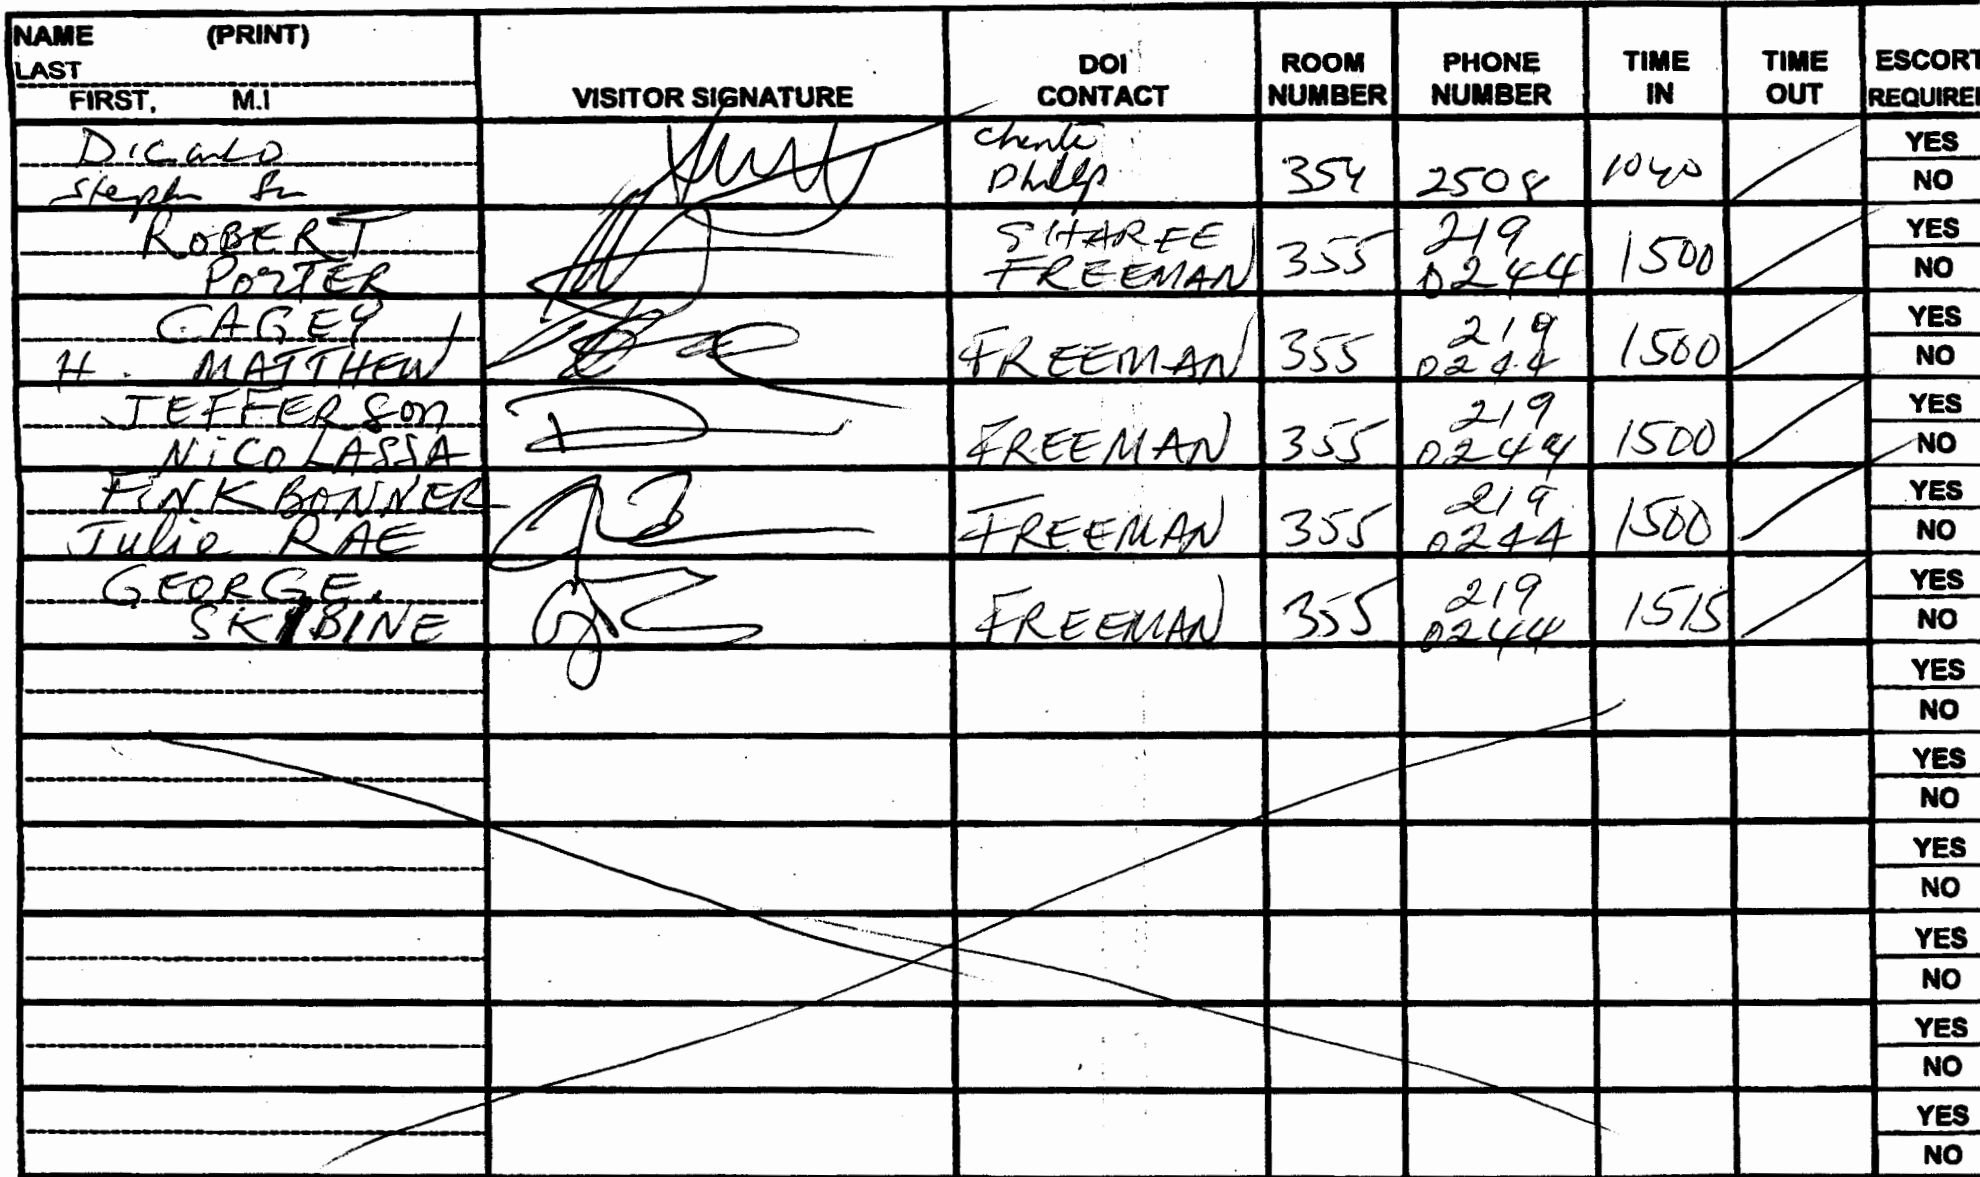 NAME (PRINT)
LAST
FIRST, M.I
VISITOR SIGNATURE
DOI CONTACT
ROOM NUMBER
PHONE NUMBER
TIME IN
TIME OUT
ESCORT REQUIRED
DiCarlo
354 2508 1040
YES
NO
ROBERT
PORTER
SHAREE
FREEMAN
355
219
0244
1500
YES
NO
CAGEY
H. MATTHEW
FREEMAN
355
219
0244
1500
YES
NO
JEFFERSON
NICOLASSA
FREEMAN
355
219
0244
1500
YES
NO
FINKBONNER
Julie RAE
FREEMAN
355
219
0244
1500
YES
NO
GEORGE.
SKIBINE
FREEMAN
355
219
0244
1515
YES
NO
YES
NO
YES
NO
YES
NO
YES
NO
YES
NO
YES
NO